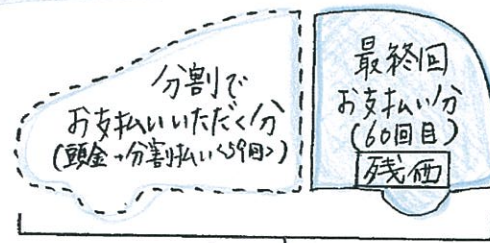 分割で
お支払いいただく分
(頭金+分割払い<59回>)
最終回
お支払い分
(60回目)
残価